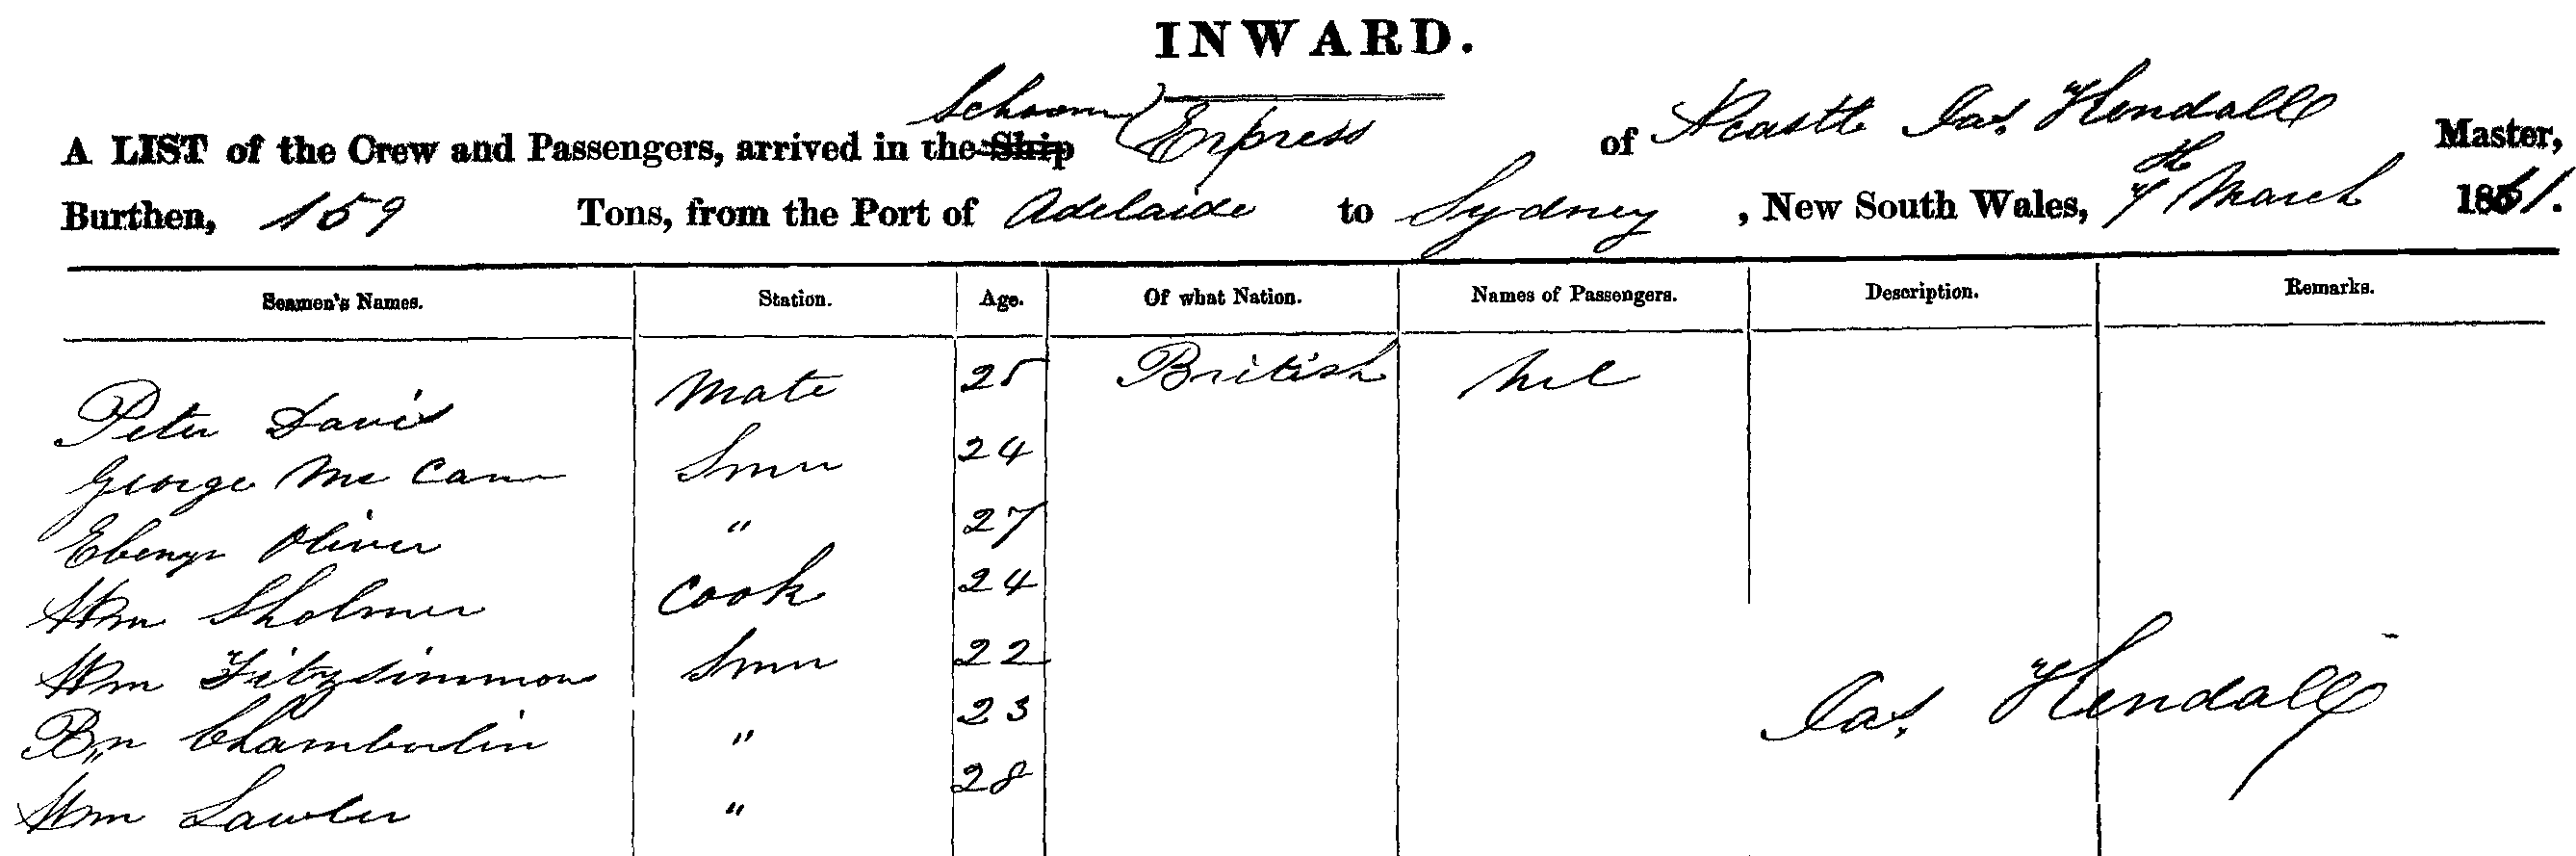 INWARD.
A LIST of the Crew and Passengers, arrived in the Ship Schoonr Express of Ncastle Jas. Kendall Master,
Burthen, 159 Tons, from the Port of Adelaide to Sydney, New South Wales, 7th March 1861.
Seamen's Names. Station. Age. Of what Nation. Names of Passengers. Description. Remarks.
Peter Davis Mate 25 British Nil
George Mc Cann Smn 24
Ebenzr Oliver " 27
Wm Sholmer Cook 24
Wm Fitzsimmons Smn 22
Bn Chamberlin " 23
Wm Lawler " 28
Jas. Kendall